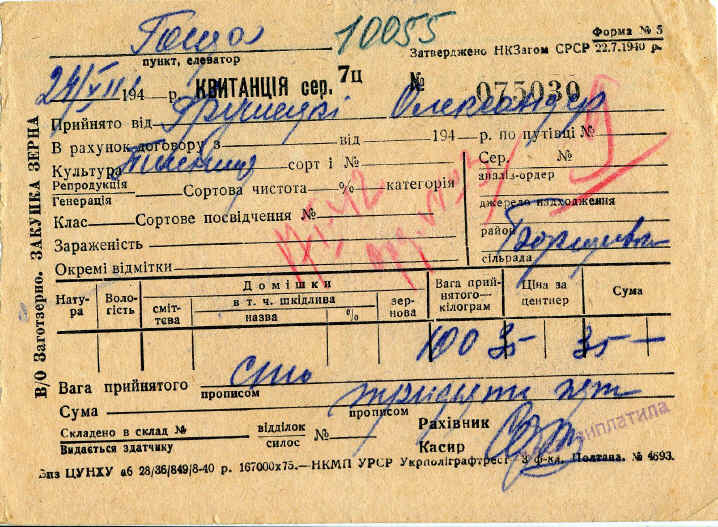 Гоща 10055 Форма № 5
пункт, елеватор Затверджено НКЗагом СРСР 22.7.1940 р.
194 р. КВИТАНЦІЯ сер. 7ц № 075030
Прийнято від Олександер
В рахунок договору з від 194 р. по путівці №
Культура Пшениця сорт і № Сер. №
Репродукція
Генерація Сортова чистота % категорія аналіз-ордер
джерело надходження
Клас Сортове посвідчення №
район
Зараженість
сільрада
Окремі відмітки
В/О Заготзерно. ЗАКУПКА ЗЕРНА
Натура Вологість Домішки Вага прийнятого кілограм Ціна за центнер Сума
сміттєва в т. ч. шкідлива зернова
назва %
100 35 35 —
Вага прийнятого сто
прописом
Сума тридцять пять
прописом
Складено в склад № відділок № Рахівник
Видається здатчику силос Касир
виплатила
ЦУНХУ аб 28/36/849/8-40 р. 167000х75.—НКМП УРСР Укрполіграфтрест— 3 ф-ка, Полтава. № 4693.